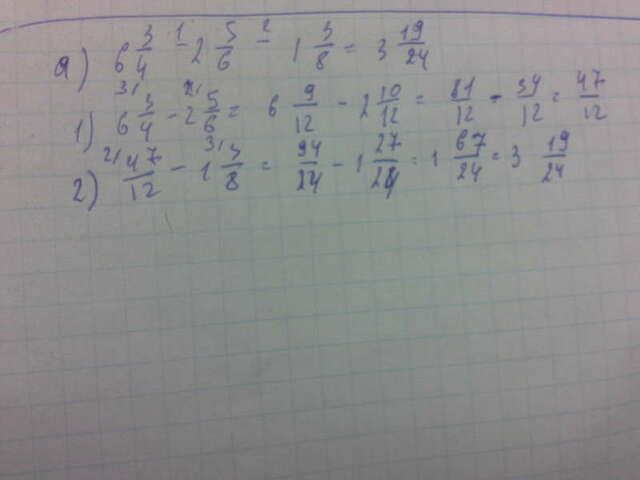 а) 6 3/4 - 2 5/6 - 1 3/8 = 3 19/24
1) 6 3/4 - 2 5/6 = 6 9/12 - 2 10/12 = 81/12 - 34/12 = 47/12
2) 47/12 - 1 3/8 = 94/24 - 1 27/24 = 1 67/24 = 3 19/24